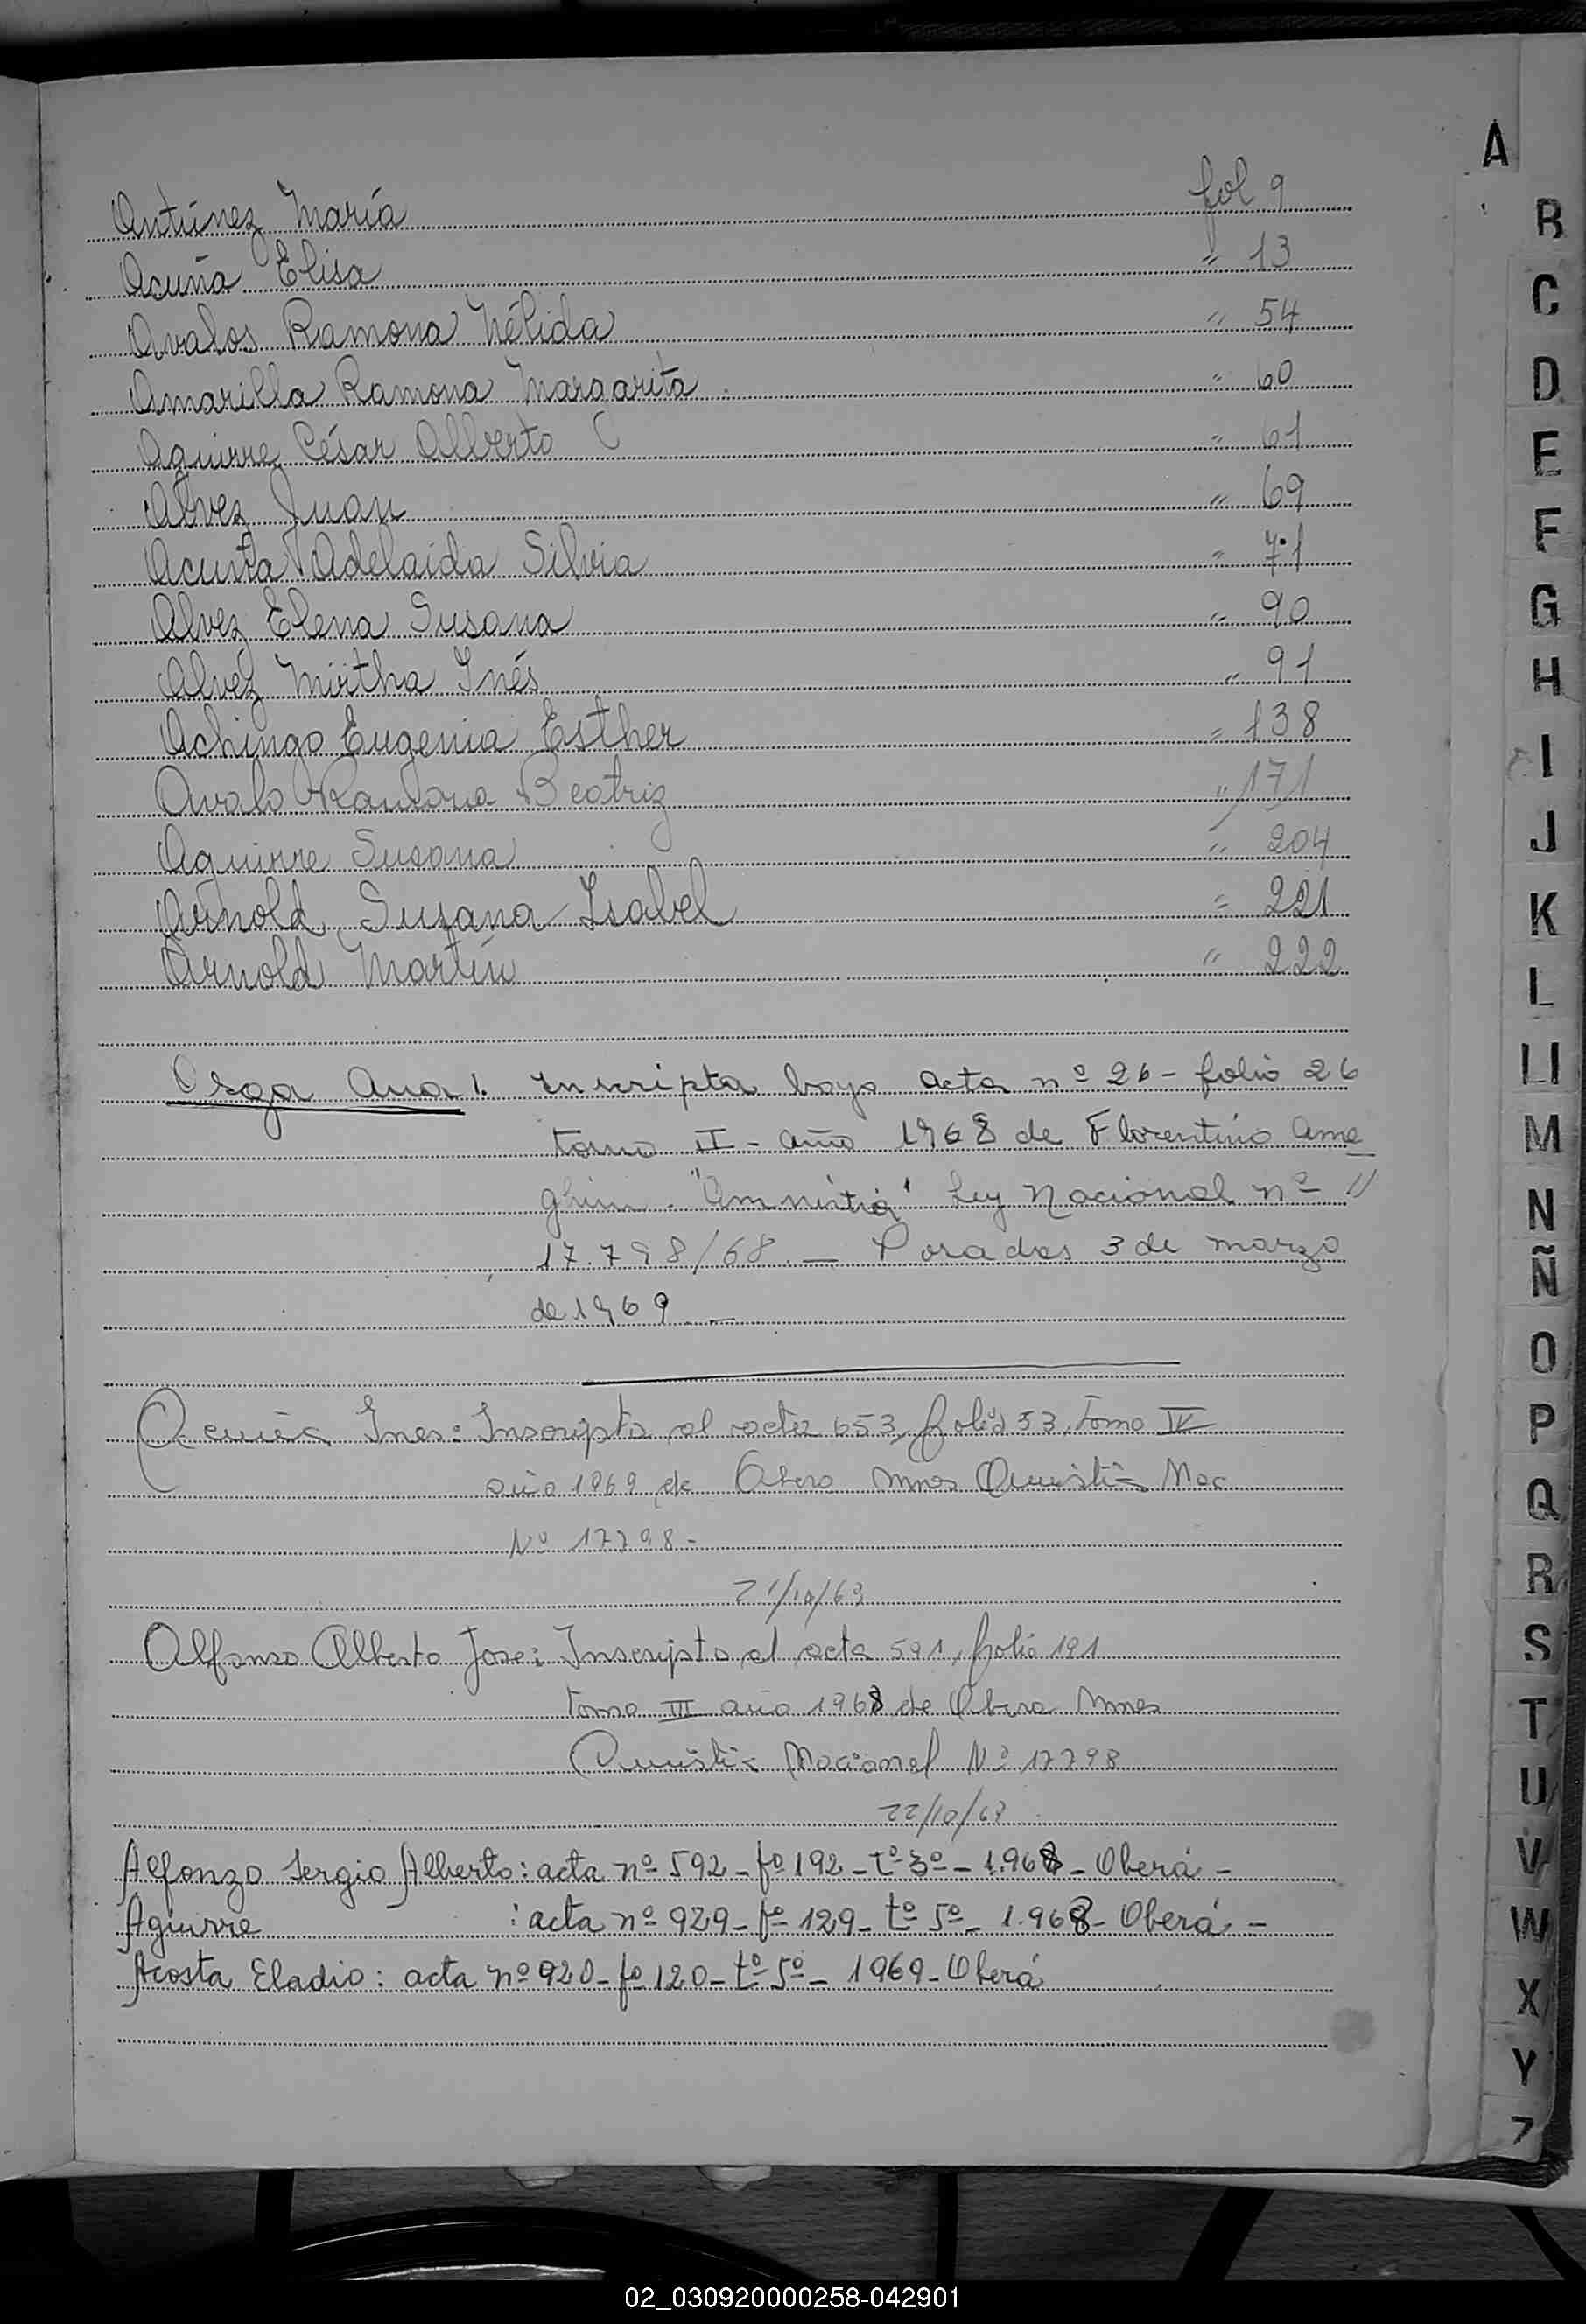 A
fol 9
Antúnez María
Acuña Elisa " 13
Avalos Ramona Nélida " 54
Amarilla Ramona Margarita " 60
Aguirre César Alberto C " 61
Alvez Juan " 69
Acusta Adelaida Silvia " 71
Alvez Elena Susana " 90
Alvez Mirtha Inés " 91
Achingo Eugenia Esther " 138
Avalo Ramona Beatriz " 171
Aguirre Susana " 204
Arnold Susana Isabel " 221
Arnold Martín " 222
Ana Inscripta bajo acta nº 26 - folio 26
tomo II - año 1968 de Florentino Ame
ghino. "Amnistia" Ley Nacional nº "
17.798/68. — Posadas 3 de marzo
de 1969 —
Acuña Ines: Inscripta al acta 653, folio 53, tomo IV
año 1969 de Obera Mnes Amistia Nac
Nº 17798 -
21/10/69
Alfonso Alberto Jose: Inscripto al acta 591, folio 191
tomo III año 1968 de Obera Mnes
Amistia Nacional Nº 17798
22/10/69
Alfonzo Sergio Alberto: acta nº 592 - fº 192 - tº 3º - 1.968 - Oberá -
Aguirre : acta nº 929 - fº 129 - tº 5º - 1.968 - Oberá -
Acosta Eladio: acta nº 920 - fº 120 - tº 5º - 1969 - Oberá
B
C
D
E
F
G
H
I
J
K
L
Ll
M
N
Ñ
O
P
Q
R
S
T
U
V
W
X
Y
Z
02_030920000258-042901